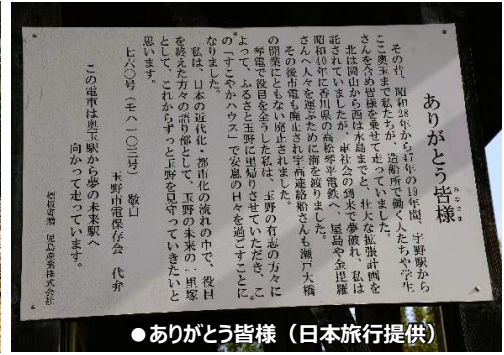 ありがとう皆様
その昔、昭和28年から47年の19年間、宇野駅から
ここ奥玉まで私たちが、造船所で働く人たちや学生
さんを含め皆様を乗せて走っていました。
北は岡山から西は水島までと、壮大な拡張計画を
託されていましたが、車社会の到来で夢破れ、私は
昭和40年に香川県の高松琴平電鉄へ、屋島や金毘羅
さんへ人々を運ぶために海を渡りました。
その後市電も廃止され宇高連絡船さんも瀬戸大橋
の開業にともない廃止されました。
琴電で役目を全うした私は、玉野の有志の方々に
よって、ふるさと玉野に里帰りさせていただき、こ
の「すこやかハウス」で安息の日々を過ごすことに
なりました。
私は、日本の近代化・都市化の流れの中で、役目
を終えた方々の語り部として、玉野の未来の一里塚
として、これからずっと玉野を見守っていきたいと
思います。
七六〇号(モハ一〇三号) 敬白
玉野市電保存会 代弁
この電車は奥玉駅から夢の未来駅へ
向かって走っています。
標板寄贈 児島産業株式会社
●ありがとう皆様（日本旅行提供）